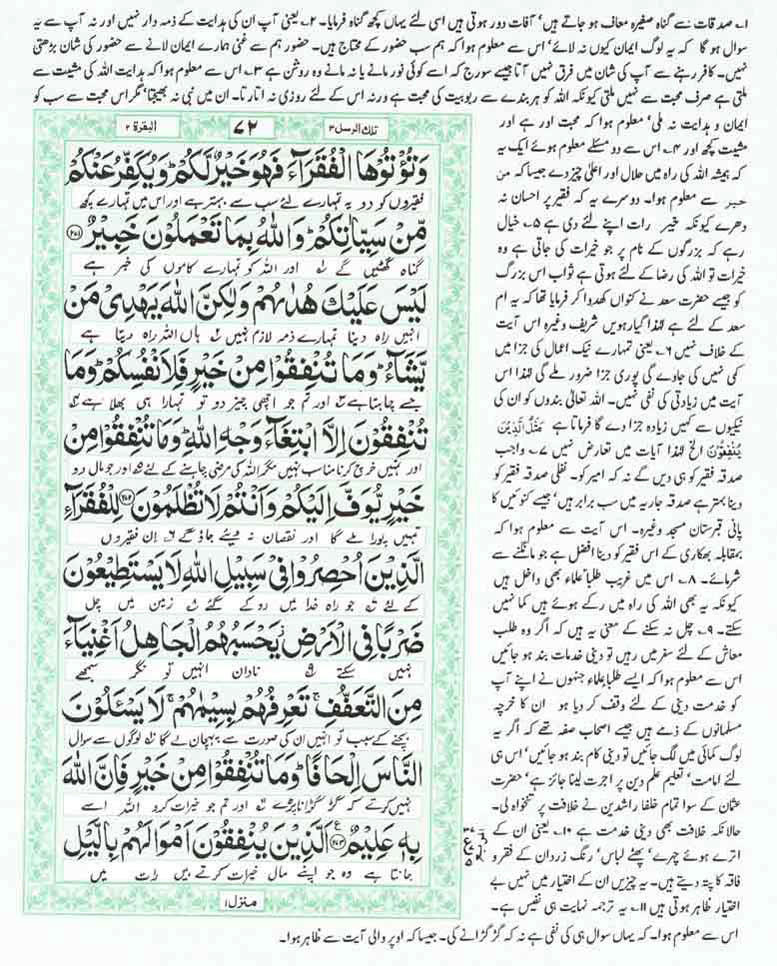 ۱۔ صدقات سے گناہ صغیرہ معاف ہو جاتے ہیں' آفات دور ہوتی ہیں اسی لئے یہاں کچھ گناہ فرمایا۔ ۲۔ یعنی آپ ان کی ہدایت کے ذمہ دار نہیں اور نہ آپ سے یہ
سوال ہو گا کہ یہ لوگ ایمان کیوں نہ لائے' اس سے معلوم ہوا کہ ہم سب حضور کے محتاج ہیں۔ حضور ہم سے غنی ہمارے ایمان لانے سے حضور کی شان بڑھتی
نہیں۔ کافر رہنے سے آپ کی شان میں فرق نہیں آتا جیسے سورج کہ اسے کوئی نور مانے یا نہ مانے وہ روشن ہے ۳۔ اس سے معلوم ہوا کہ ہدایت اللہ کی مشیت سے
ملتی ہے صرف محبت سے نہیں ملتی کیونکہ اللہ کو ہر بندے سے ربوبیت کی محبت ہے ورنہ اس کے لئے روزی نہ اتارتا۔ ان میں نبی نہ بھیجتا' مگر اس محبت سے سب کو
ایمان و ہدایت نہ ملی' معلوم ہوا کہ محبت اور ہے اور
مشیت کچھ اور ۴۔ اس سے دو مسئلے معلوم ہوئے ایک یہ
کہ ہمیشہ اللہ کی راہ میں حلال اور اعلیٰ چیز دے جیسا کہ من
خیر سے معلوم ہوا۔ دوسرے یہ کہ فقیر پر احسان نہ
دھرے کیونکہ خیر رات اپنے لئے دی ہے ۵۔ خیال
رہے کہ بزرگوں کے نام پر جو خیرات کی جاتی ہے وہ
خیرات تو اللہ کی رضا کے لئے ہوتی ہے ثواب اس بزرگ
کو جیسے حضرت سعد نے کنواں کھدوا کر فرمایا تھا کہ یہ ام
سعد کے لئے ہے لہٰذا گیارہویں شریف وغیرہ اس آیت
کے خلاف نہیں ۶۔ یعنی تمہارے نیک اعمال کی جزا میں
کمی نہیں کی جاوے گی پوری جزا ضرور ملے گی لہٰذا اس
آیت میں زیادتی کی نفی نہیں۔ اللہ تعالیٰ بندوں کو ان کی
نیکیوں سے کہیں زیادہ جزا دے گا فرماتا ہے مَثَلُ الَّذِیْنَ
یُنْفِقُوْنَ الخ لہٰذا آیات میں تعارض نہیں ۷۔ واجب
صدقہ فقیر کو ہی دیں گے نہ کہ امیر کو۔ نفلی صدقہ فقیر کو
دینا بہتر ہے صدقہ جاریہ میں سب برابر ہیں' جیسے کنوئیں کا
پانی قبرستان مسجد وغیرہ۔ اس آیت سے معلوم ہوا کہ
بمقابلہ بھکاری کے اس فقیر کو دینا افضل ہے جو مانگنے سے
شرمائے۔ ۸۔ اس میں غریب طلبا' علماء بھی داخل ہیں
کیونکہ یہ بھی اللہ کی راہ میں رکے ہوئے ہیں کما نہیں
سکتے۔ ۹۔ چل نہ سکنے کے معنی یہ ہیں کہ اگر وہ طلب
معاش کے لئے سفر میں رہیں تو دینی خدمات بند ہو جائیں
اس سے معلوم ہوا کہ ایسے طلبا' علماء جنہوں نے اپنے آپ
کو خدمت دینی کے لئے وقف کر دیا ہو ان کا خرچہ
مسلمانوں کے ذمے ہیں جیسے اصحاب صفہ تھے کہ اگر یہ
لوگ کمائی میں لگ جائیں تو دینی کام بند ہو جائیں' اس ہی
لئے امامت' تعلیم علم دین پر اجرت لینا جائز ہے' حضرت
عثمان کے سوا تمام خلفا راشدین نے خلافت پر تنخواہ لی۔
حالانکہ خلافت بھی دینی خدمت ہے ۱۰۔ یعنی ان کے
اترے ہوئے چہرے' پھٹے لباس' رنگ زرد ان کے فقر و
فاقہ کا پتہ دیتے ہیں۔ یہ چیزیں ان کے اختیار میں نہیں بے
اختیار ظاہر ہوتی ہیں ۱۱۔ یہ ترجمہ نہایت ہی نفیس ہے۔
اس سے معلوم ہوا۔ کہ یہاں سوال ہی کی نفی ہے نہ کہ گڑ گڑانے کی۔ جیسا کہ اوپر والی آیت سے ظاہر ہوا۔
تلك الرسل ۳
۷۲
البقرة ۲
وَتُؤْتُوهَا الْفُقَرَآءَ فَهُوَ خَيْرٌ لَّكُمْ ؕ وَيُكَفِّرُ عَنْكُمْ
فقیروں کو دو یہ تمہارے لئے سب سے بہتر ہے اور اس میں تمہارے کچھ
مِّنْ سَيِّاٰتِكُمْ ؕ وَاللّٰهُ بِمَا تَعْمَلُوْنَ خَبِيْرٌ ﴿۲۷۱﴾
گناہ گھٹیں گے ۱ اور اللہ کو تمہارے کاموں کی خبر ہے
لَيْسَ عَلَيْكَ هُدٰىهُمْ وَلٰكِنَّ اللّٰهَ يَهْدِيْ مَنْ
انہیں راہ دینا تمہارے ذمہ لازم نہیں ۲ ہاں اللہ راہ دیتا ہے
يَّشَآءُ ؕ وَمَا تُنْفِقُوْا مِنْ خَيْرٍ فَلِاَنْفُسِكُمْ ؕ وَمَا
جسے چاہتا ہے ۳ اور تم جو اچھی چیز دو تو تمہارا ہی بھلا ہے ۴
تُنْفِقُوْنَ اِلَّا ابْتِغَآءَ وَجْهِ اللّٰهِ ؕ وَمَا تُنْفِقُوْا مِنْ
اور تمہیں خرچ کرنا مناسب نہیں مگر اللہ کی مرضی چاہنے کے لئے ۵ اور جو مال دو
خَيْرٍ يُّوَفَّ اِلَيْكُمْ وَاَنْتُمْ لَا تُظْلَمُوْنَ ﴿۲۷۲﴾ لِلْفُقَرَآءِ
تمہیں پورا ملے گا اور نقصان نہ دیئے جاؤ گے ۶ ان فقیروں
الَّذِيْنَ اُحْصِرُوْا فِيْ سَبِيْلِ اللّٰهِ لَا يَسْتَطِيْعُوْنَ
کے لئے ۷ جو راہ خدا میں روکے گئے ۸ زمین میں چل
ضَرْبًا فِي الْاَرْضِ ؗ يَحْسَبُهُمُ الْجَاهِلُ اَغْنِيَآءَ
نہیں سکتے ۹ نادان انہیں تو نگر سمجھے
مِنَ التَّعَفُّفِ ۚ تَعْرِفُهُمْ بِسِيْمٰهُمْ ۚ لَا يَسْئَلُوْنَ
بچنے کے سبب تو انہیں ان کی صورت سے پہچان لے گا ۱۰ لوگوں سے سوال
النَّاسَ اِلْحَافًا ؕ وَمَا تُنْفِقُوْا مِنْ خَيْرٍ فَاِنَّ اللّٰهَ
نہیں کرتے کہ گڑ گڑانا پڑے ۱۱ اور تم جو خیرات کرو اللہ اسے
بِهٖ عَلِيْمٌ ﴿۲۷۳﴾ اَلَّذِيْنَ يُنْفِقُوْنَ اَمْوَالَهُمْ بِالَّيْلِ
جانتا ہے وہ جو اپنے مال خیرات کرتے ہیں رات میں
منزل ۱